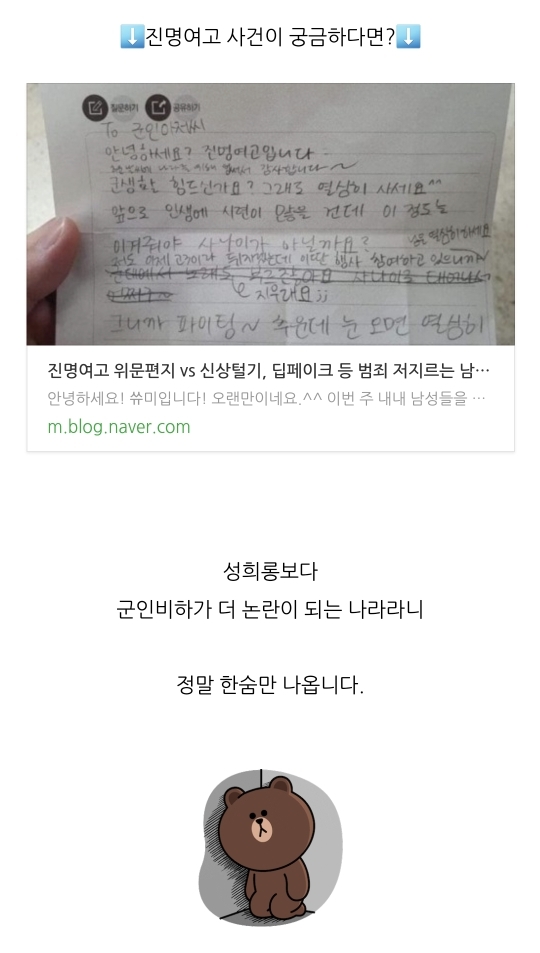 ⬇️진명여고 사건이 궁금하다면?⬇️
질문하기 공유하기
To 군인아저씨
안녕하세요? 진명여고입니다
고생한 힘드신가요? 그래도 열심히 사세요^^
앞으로 인생에 시련이 많을 건데 이 정도는
이겨줘야 사나이가 아닐까요?
저도 이제 고3이라 뒤지겠는데 이딴 행사 참여하고 있으니까
지우래요;;
그니까 파이팅~ 추운데 눈 오면 열심히
진명여고 위문편지 vs 신상털기, 딥페이크 등 범죄 저지르는 남…
안녕하세요! 쓔미입니다! 오랜만이네요.^^ 이번 주 내내 남성들을 …
m.blog.naver.com
성희롱보다
군인비하가 더 논란이 되는 나라라니
정말 한숨만 나옵니다.